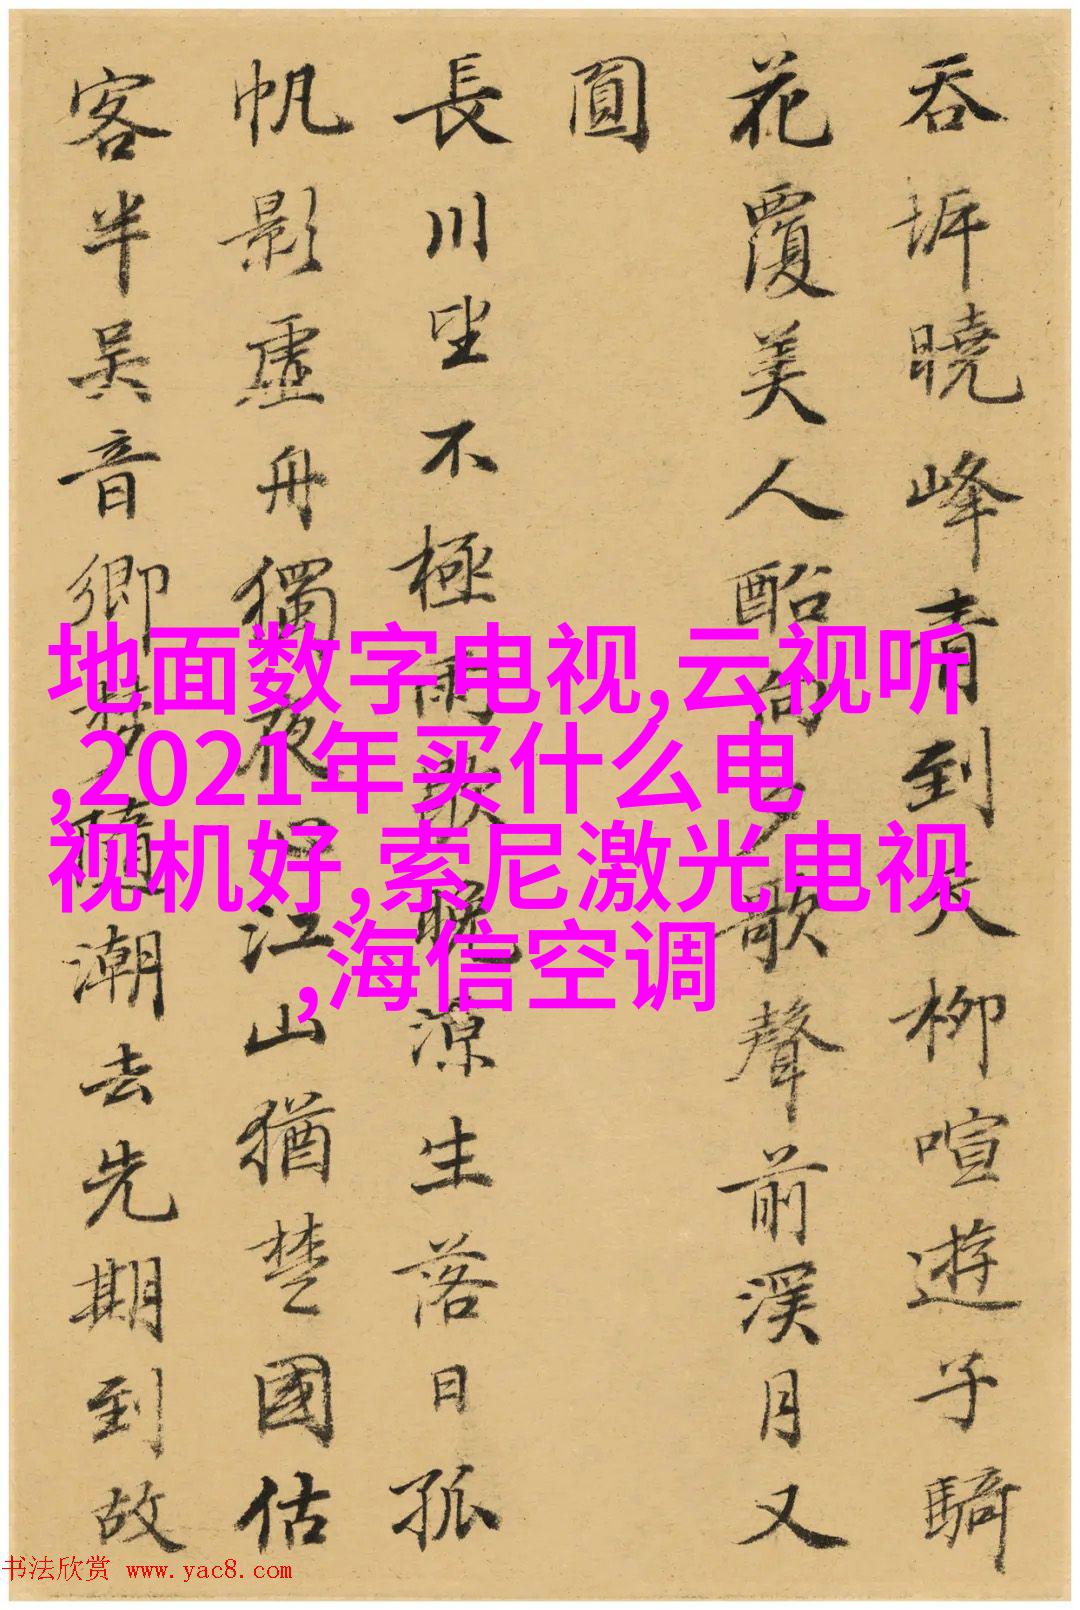 吞坼曉峰青到天柳喧遊子騎
花覆美人酩向夕歌聲前溪月又
圓
長川坐不極雨歇晚涼生落日孤
帆影虛舟獨夜江山猶楚國估
客半吳音鄉夢隨潮去先期到故
地面数字电视,云视听
,2021年买什么电
视机好,索尼激光电视
,海信空调
书法欣赏 www.yac8.com